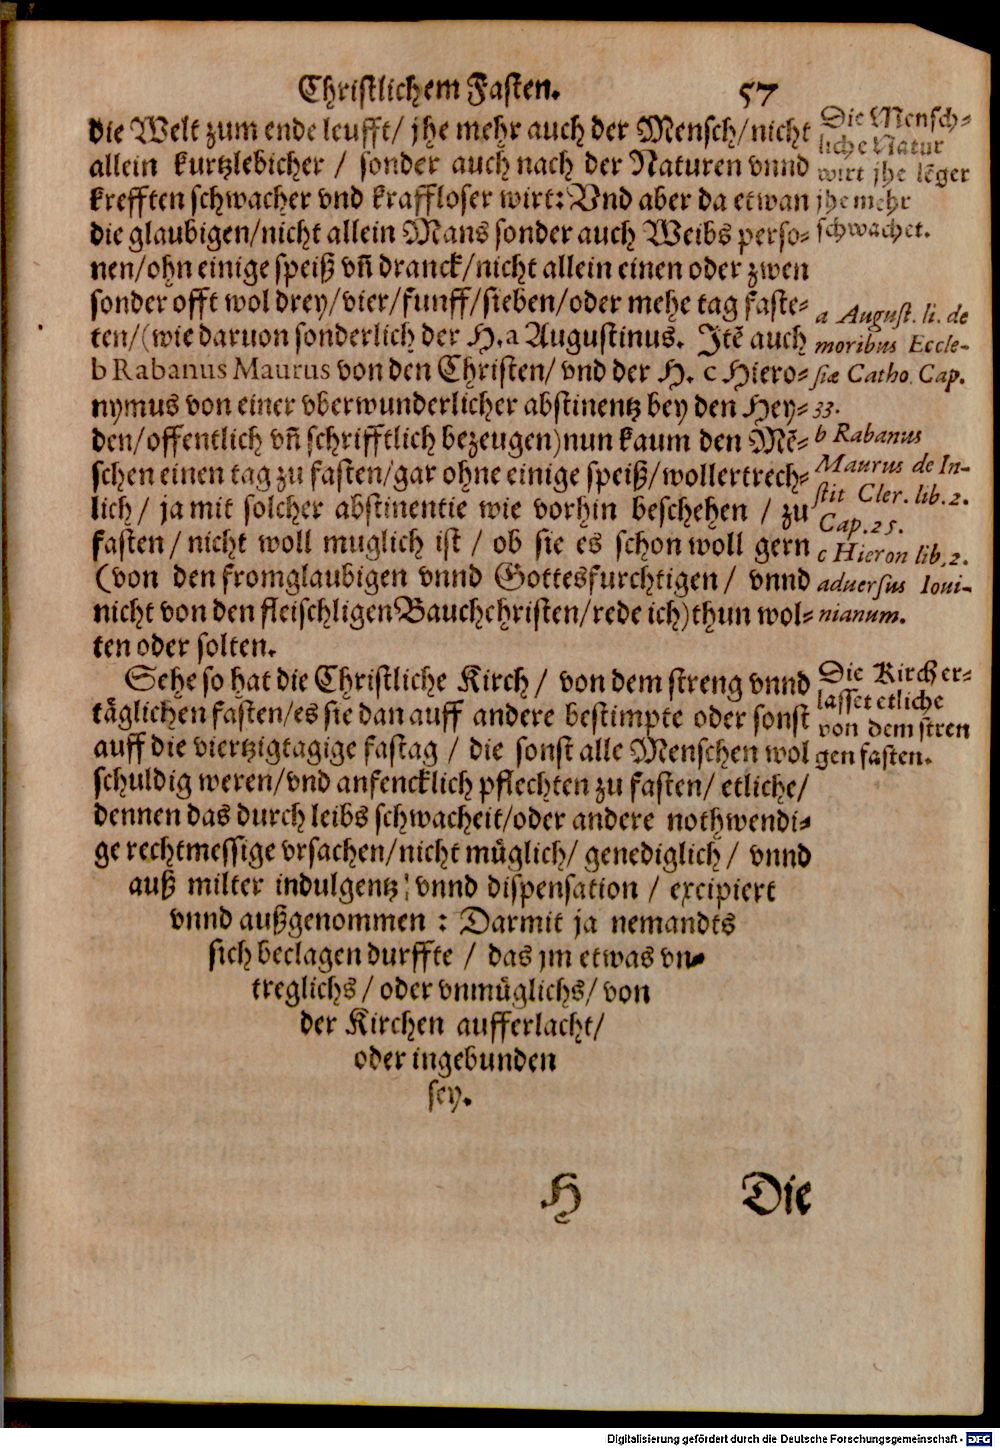 Christlichem Fasten. 57
die Welt zum ende leufft/ jhe mehr auch der Mensch/nicht
allein kurtzlebicher / sonder auch nach der Naturen vnnd
krefften schwacher vnd kraffloser wirt: Vnd aber da etwan
die glaubigen/nicht allein Mans sonder auch Weibs perso⸗
nen/ohn einige speiß vñ dranck/nicht allein einen oder zwen
sonder offt wol drey/vier/funff/sieben/oder mehe tag faste⸗
ten/(wie daruon sonderlich der H.a Augustinus. Jtē auch
b Rabanus Maurus von den Christen/ vnd der H. c Hiero⸗
nymus von einer vberwunderlicher abstinentz bey den Hey⸗
den/offentlich vñ schrifftlich bezeugen)nun kaum den Mē⸗
schen einen tag zu fasten/gar ohne einige speiß/wollertrech⸗
lich/ ja mit solcher abstinentie wie vorhin beschehen / zu
fasten/nicht woll muglich ist / ob sie es schon woll gern
(von den fromglaubigen vnnd Gottesfurchtigen/ vnnd
nicht von den fleischligen Bauchchristen/rede ich)thun wol⸗
ten oder solten.
Sehe so hat die Christliche Kirch/ von dem streng vnnd
täglichen fasten/es sie dan auff andere bestimpte oder sonst
auff die viertzigtagige fastag / die sonst alle Menschen wol
schuldig weren/vnd anfencklich pflechten zu fasten/ etliche/
dennen das durch leibs schwacheit/oder andere nothwendi⸗
ge rechtmessige vrsachen/nicht müglich/ genediglich/ vnnd
auß milter indulgentz/ vnnd dispensation / excipiert
vnnd außgenommen : Darmit ja nemandts
sich beclagen durffte / das jm etwas vn⸗
treglichs/ oder vnmüglichs/ von
der Kirchen aufferlacht/
oder ingebunden
sey.
Die Mensch⸗
liche Natur
wirt jhe lēger
jhe mehr
schwachet.
a August. li. de
moribus Eccle-
siæ Catho. Cap.
33.
b Rabanus
Maurus de In-
stit Cler. lib. 2.
Cap. 25.
c Hieron lib. 2.
aduersus Ioui-
nianum.
Die Kirch er⸗
lasset etliche
von dem stren
gen fasten.
H Die
Digitalisierung gefördert durch die Deutsche Forschungsgemeinschaft - DFG